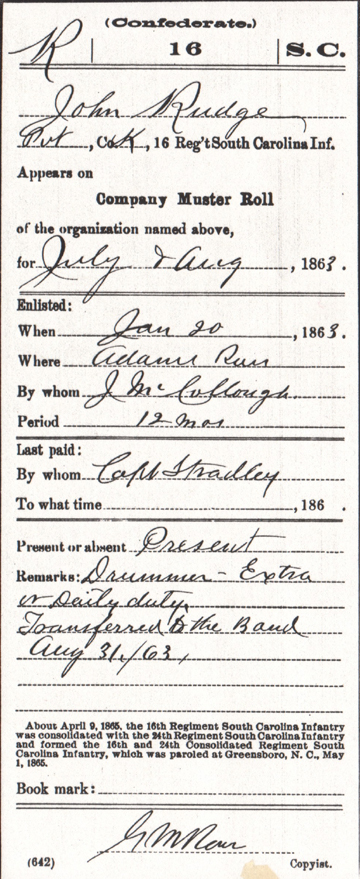 (Confederate.)
R | 16 | S. C.
John Rudge
Pvt, Co. K, 16 Reg't South Carolina Inf.
Appears on
Company Muster Roll
of the organization named above,
for July & Aug, 1863.
Enlisted:
When Jan 20, 1863.
Where Adams Run
By whom J McCollough
Period 12 mos
Last paid:
By whom Capt Stradley
To what time, 186 .
Present or absent Present
Remarks: Drummer - Extra
or Daily duty.
Transferred to the Band
Aug 31./63,
About April 9, 1865, the 16th Regiment South Carolina Infantry
was consolidated with the 24th Regiment South Carolina Infantry
and formed the 16th and 24th Consolidated Regiment South
Carolina Infantry, which was paroled at Greensboro, N. C., May
1, 1865.
Book mark:
(642) Copyist.